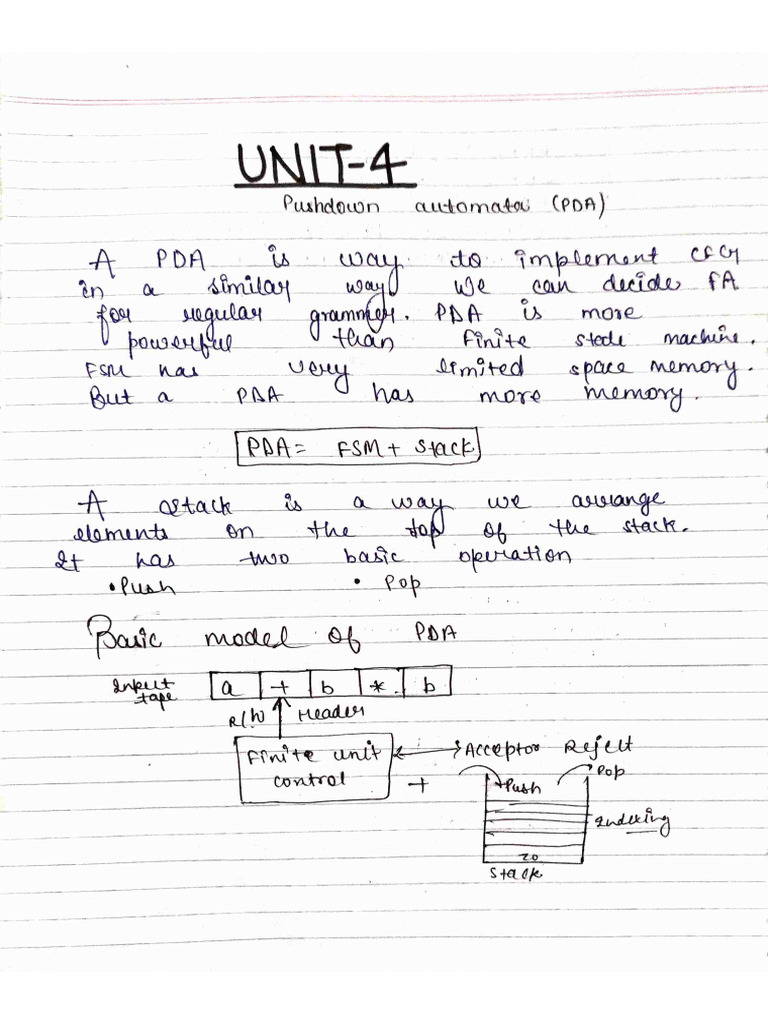 UNIT-4
Pushdown automata (PDA)
A PDA is way to implement CFG
in a similar way we can decide FA
for regular grammer. PDA is more
powerful than finite state machine.
FSM has very limited space memory.
But a PDA has more memory.
PDA = FSM + Stack
A stack is a way we arrange
elements on the top of the stack.
It has two basic operation
• Push • Pop
Basic model of PDA
Input tape
a + b * b
R/W Header
Finite unit control
Acceptor Reject
+
Push
Pop
Indexing
z0
Stack